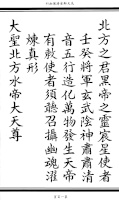 北方之君黑帝之靈宸星使者
壬癸將軍玄武陰神肅肅清
音五行造化萬物發生天帝
有敕使者須聽召攝幽魂濯
煉真形
大聖北方水帝大天尊